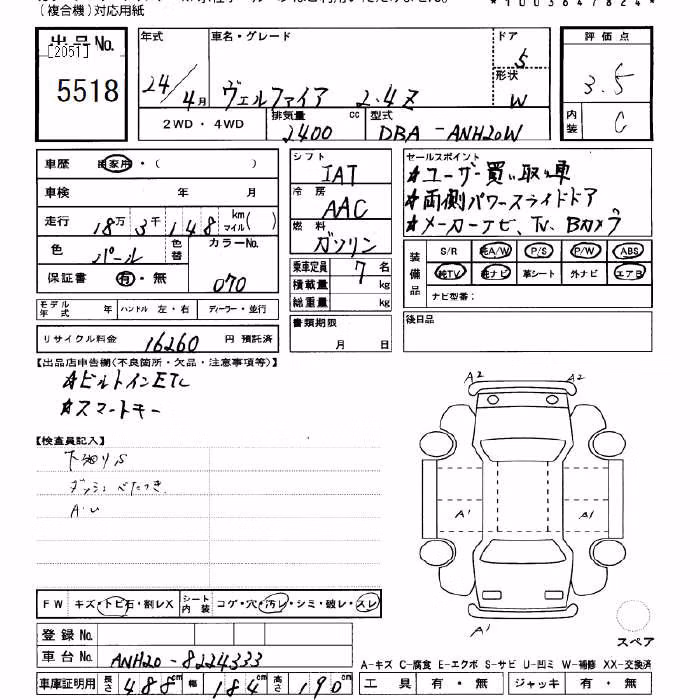 (複合機)対応用紙
*1003647824*
出品No.
[2051]
5518
年式
24/4月
車名・グレード
ヴェルファイア 2.4Z
ドア
5
形状
W
評価点
3.5
内装
C
2WD・4WD
排気量
2400 cc
型式
DBA-ANH20W
車歴 自家用・( )
車検 年 月
走行 18万3千148 km マイル( )
色 パール
色替
カラーNo. 070
保証書 有・無
シフト IAT
冷房 AAC
燃料 ガソリン
乗車定員 7名
積載量 kg
総重量 kg
セールスポイント
★ユーザー買い取り車
★両側パワースライドドア
★メーカーナビ、TV、Bカメラ
装備品
S/R 純A/W P/S P/W ABS
純TV 純ナビ 革シート 外ナビ エアB
ナビ型番:
モデル年式 年 ハンドル 左・右 ディーラー・並行
書類期限 月 日
後日品
リサイクル料金 16260 円 預託済
【出品店申告欄(不良箇所・欠品・注意事項等)】
★ビルトインETC
★スマートキー
A2 A2
【検査員記入】
下廻りS
ダッシュべたつき
AU
A1 A1
A1
FW キズ・トビ石・割レX
シート内装 コゲ・穴・汚レ・シミ・破レ・スレ
スペア
登録No.
車台No. ANH20-8224333
A-キズ C-腐食 E-エクボ S-サビ U-凹ミ W-補修 XX-交換済
車庫証明用 長さ 488cm 幅 184cm 高さ 190cm
工具 有・無 ジャッキ 有・無